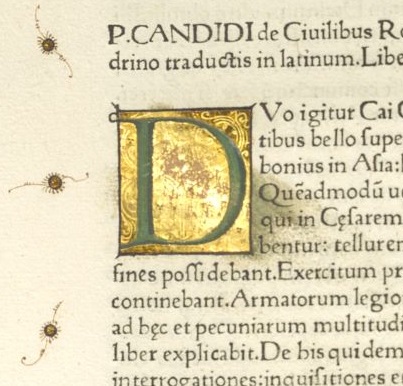 P.CANDIDI de Ciuilibus Ro
drino traductis in latinum.Libe
d
D
Vo igitur Cai C
tibus bello supe
bonius in Asia:
Quẽadmodũ ue
qui in Cęsarem
bentur: tellurem
fines possidebant.Exercitum pr
continebant.Armatorum legio
ad hęc et pecuniarum multitudi
liber explicabit.De his quidem
interrogationes:inquisitiones e